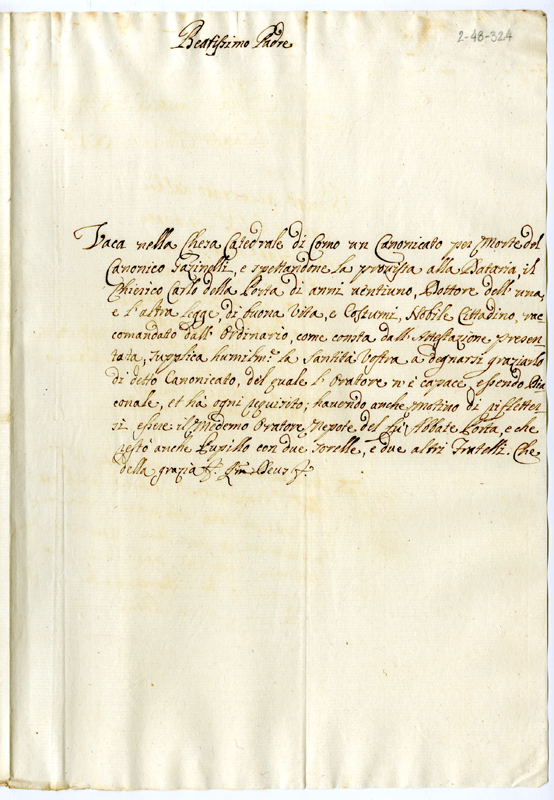 2-48-324
Beatissimo Padre
Vaca nella Chiesa Catedrale di Como un Canonicato per Morte del
Canonico e spettandone la provista alla Dataria, il
Chierico Carlo della Porta di anni ventiuno, Dottore dell'una,
e l'altra legge, di buona Vita, e Costumi, Nobile Cittadino, rac=
comandato dall'Ordinario, come consta dall'Attestazione presen=
tata, supplica humilmᵗᵉ la Santità Vostra a degnarsi graziarlo
di detto Canonicato, del quale l'Oratore n'è capace, essendo
conale, et hà ogni requisito; havendo anche motivo di riflетter=
si, essere il Medemo Oratore Nepote del fù Abbate Porta, e che
restò anche Pupillo con due sorelle, e due altri Fratelli. Che
della grazia